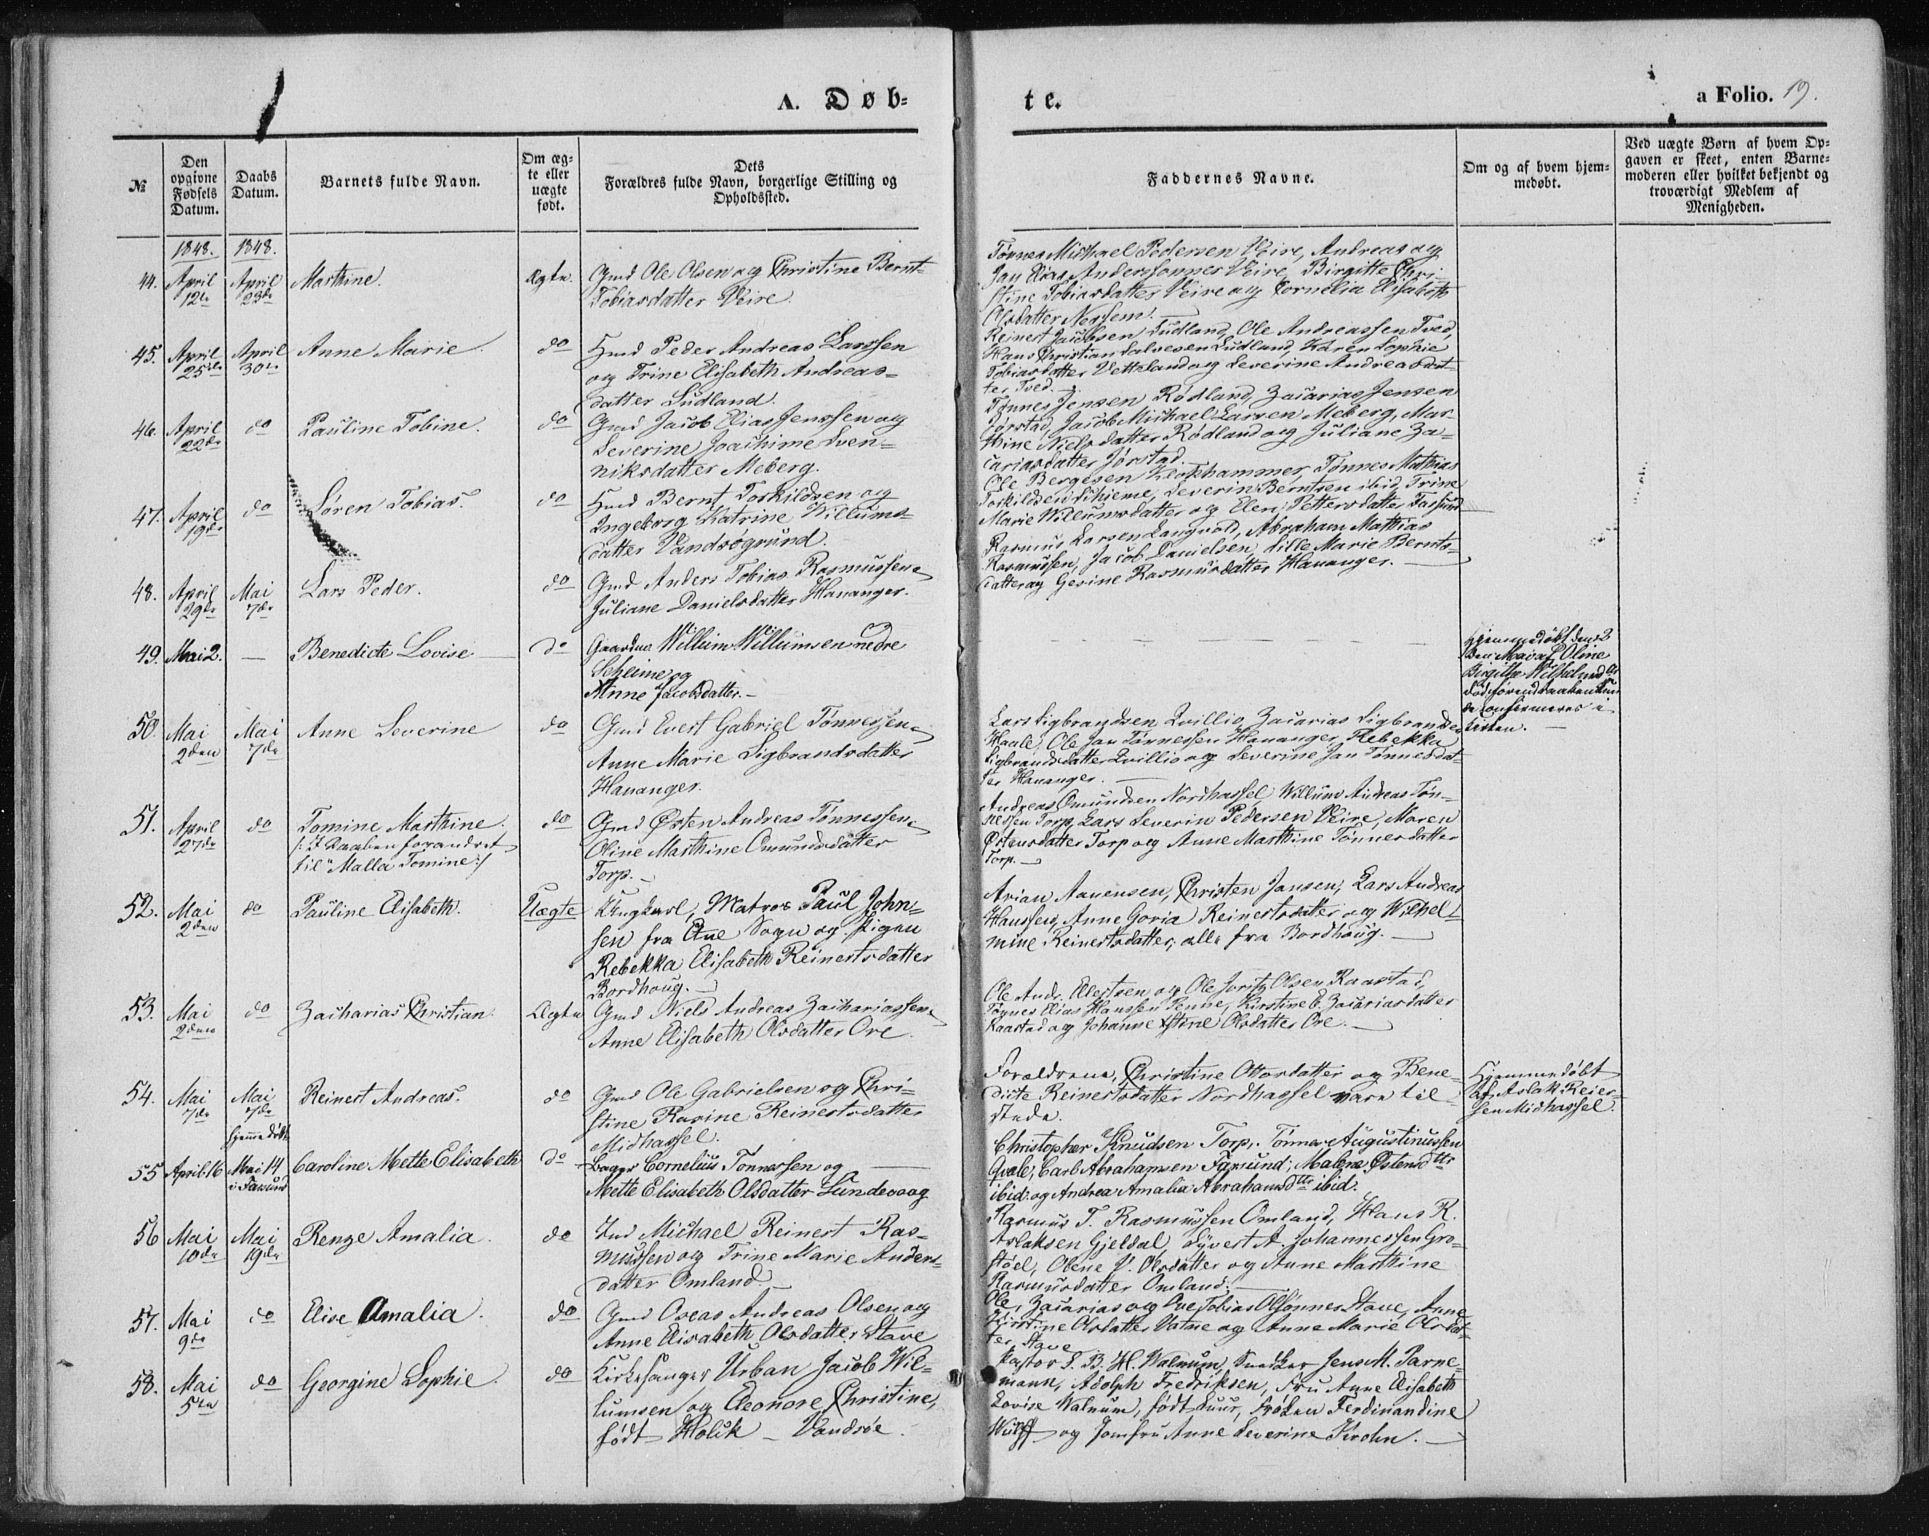 A. Døb-
te.
a Folio. 19.
№
Den opgivne Fødsels Datum.
Daabs Datum.
Barnets fulde Navn.
Om ægte eller uægte født.
Dets Forældres fulde Navn, borgerlige Stilling og Opholdssted.
Faddernes Navne.
Om og af hvem hjemmedøbt.
Ved uægte Børn af hvem Opgaven er skeet, enten Barnemoderen eller hvilket bekjendt og troværdigt Medlem af Menigheden.
1848. 1848.
44. April 12te April 23de Marthine. Ægte.
Gmd Ole Olsen og Christine Bernt-
Tobiasdatter Veire.
Tønnes Michael Pedersen Veire, Andreas og
Jan Elias Anderssønner Veire, Birgitte Chri-
stine Tobiasdatter Veire og Cornelia Elisabeth
Olsdatter
45. April 25de April 30te Anne Marie. do
Hmd Peder Andreas Larssen
og Trine Elisabeth Andreas-
datter Ludland.
Reinert Jacobsen Ludland, Ole Andreassen Tved,
Hans Christian Salvesen Ludland, Karen Sophie
Tobiasdatter Vetteland og Severine Andreasdat-
ter Tved.
46. April 22de do Pauline Tobine. do
Gmd Jacob Elias Jenssen og
Severine Joachime Sven-
niksdatter Meberg.
Tønnes Jensen Rødland, Zacarias Jensen
Jørstad, Jacob Michael Larsen Meberg, Mar-
thine Nielsdatter Rødland og Juliane Za-
cariasdatter Jørstad.
47. April 19de do Søren Tobias. do
Hmd Bernt Torkildsen og
Ingeborg Katrine Willums-
datter Vandsøgrund.
Ole Bergesen Tønnes Mathias
Torkildsen Schieme, Severin Berntsen ibid, Trine
Marie Willumsdatter og Elen Pettersdatter Farsund
48. April 29de Mai 7de Lars Peder. do
Gmd Anders Tobias Rasmussen og
Juliane Danielsdatter Hananger.
Rasmus Larsen Langvold, Abraham Mathias
Rasmussen, Jacob Danielsen, Lille Marie Bernts-
datter og Gesine Rasmusdatter Hananger.
49. Mai 2. — Benedicte Lovise do
Gaardm Willum Willumsen nedre
Scheime og
Anne Jacobsdatter. —
Hjemmedøbt den 3
Mai af Oline
Birgitte
død førend Daaben kun-
de confirmeres i
Kirken.
50. Mai 2den Mai 7de Anne Severine do
Gmd Evert Gabriel Tønnessen og
Anne Marie Sigbrandsdatter
Hananger.
Lars Sigbrandsen Qvillio, Zacarias Sigbrandsen
Haale, Ole Jan Tønnessen Hananger, Rebekka
Sigbrandsdatter Qvillio og Severine Jan Tønnesdat-
ter Hananger.
51. April 27de do Tomine Marthine.
/: I Daaben forandret
til "Malla Tomine :/
do
Gmd Østen Andreas Tønnessen og
Oline Marthine Omundsdatter
Torp. —
Andreas Omundsen Nordhassel, Willum Andreas Tøn-
nessen Torp, Lars Severin Pedersen Veire, Maren
Østensdatter Torp og Anne Marthine Tønnesdatter
Torp. —
52. Mai 2den do Pauline Elisabeth. Uægte
Ungkarl, Matros Paul John-
sen fra Sogn og Pigen
Rebekka Elisabeth Reinertsdatter
Bordhoug. —
Arian Aanensen, Christen Jansen, Lars Andreas
Hanssen, Anne Goria Reinertsdatter og Wilhel-
mine Reinertsdatter, alle fra Bordhoug. —
53. Mai 2den do Zacharias Christian Ægte
Gmd Niels Andreas Zachariassen og
Anne Elisabeth Olsdatter Ore.
Ole Andr. Eilertsen og Ole Olsen Raastad,
Tønnes Elias Hanssen Penne, Kirstine E. Zacariasdatter
Raastad og Johanne Olsdatter Ore. —
54. Mai 7de Mai 7de Hjemmedøbt Reinert Andreas. do
Gmd Ole Gabrielsen og Chri-
stine Rasine Reinertsdatter
Midhassel.
Forældrene, Christine Ottosdatter og Bene-
dicte Reinertsdatter Nordhassel vare til-
stede.
Hjemmedøbt
af Aslak Reier-
sen Midhassel.
55 April 16 Mai 14 i Farsund Caroline Mette Elisabeth do
Cornelius Tønnessen og
Mette Elisabeth Olsdatter Lundevaag
Christopher Knudsen Torp, Tønnes Augustinussen
Qvale, Carl Abrahamsen Farsund, Malene Østensdtr
ibid. og Andrea Amalia Abrahamsdtr ibid.
56 Mai 10de Mai 19de Renze Amalia. do
Michael Reinert Ras-
mussen og Trine Marie Anders-
datter Omland.
Rasmus T. Rasmussen Omland, Hans R.
Aslaksen Gjeldal, Syvert A. Johannessen Gro-
støel, Olene V. Olsdatter og Anne Marthine
Rasmusdatter Omland. —
57. Mai 9de do Elise Amalia. do
Gmd Oseas Andreas Olsen og
Anne Elisabeth Olsdatter Stave
Ole, Zacarias og Ove Tobias Olsønner Stave, Anne
Kirstine Olsdatter Vatne og Anne Marie Olsdat-
ter Stave
58. Mai 5te do Georgine Sophie. do
Kirkesanger Urban Jacob Wil-
lumsen og Eleonore Christine,
født Holik — Vandsøe.
Pastor T. B. H. Walnum, Snedker Jens M. Parne-
mann, Adolph Fredriksen, Fru Anne Elisabeth
Lovise Walnum, født Luur, Frøken Ferdinandine
Wulff og Jomfru Anne Severine Krohn. —